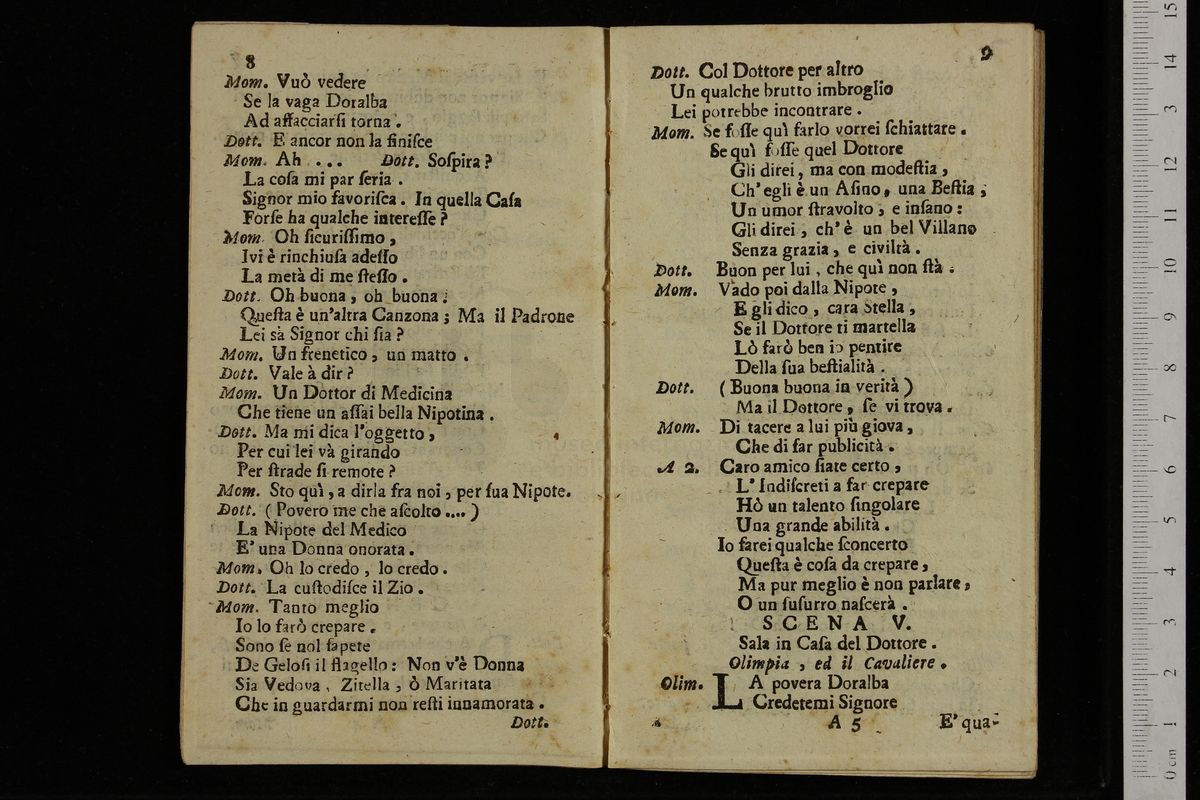 8
Mom. Vuò vedere
Se la vaga Doralba
Ad affacciarſi torna.
Dott. E ancor non la finiſce
Mom. Ah .... Dott. Soſpira?
La coſa mi par ſeria.
Signor mio favoriſca. In quella Caſa
Forſe ha qualche intereſſe?
Mom. Oh ſicuriſſimo,
Ivi è rinchiuſa adeſſo
La metà di me ſteſſo.
Dott. Oh buona, oh buona:
Queſta è un'altra Canzona; Ma il Padrone
Lei sà Signor chi ſia?
Mom. Un frenetico, un matto.
Dott. Vale à dir?
Mom. Un Dottor di Medicina
Che tiene un aſſai bella Nipotina.
Dott. Ma mi dica l'oggetto,
Per cui lei và girando
Per ſtrade ſi remote?
Mom. Sto quì, a dirla fra noi, per ſua Nipote.
Dott. (Povero me che aſcolto ....)
La Nipote del Medico
E' una Donna onorata.
Mom. Oh lo credo, lo credo.
Dott. La cuſtodiſce il Zio.
Mom. Tanto meglio
Io lo farò crepare.
Sono ſe nol ſapete
De Geloſi il flagello: Non v'è Donna
Sia Vedova, Zitella, ò Maritata
Che in guardarmi non reſti innamorata.
Dott.
9
Dott. Col Dottore per altro
Un qualche brutto imbroglio
Lei potrebbe incontrare.
Mom. Se foſſe quì farlo vorrei ſchiattare.
Se quì foſſe quel Dottore
Gli direi, ma con modeſtia,
Ch'egli è un Aſino, una Beſtia;
Un umor ſtravolto, e inſano:
Gli direi, ch'è un bel Villano
Senza grazia, e civiltà.
Dott. Buon per lui, che quì non ſtà.
Mom. Vado poi dalla Nipote,
E gli dico, cara Stella,
Se il Dottore ti martella
Lò farò ben io pentire
Della ſua beſtialità.
Dott. (Buona buona in verità)
Ma il Dottore, ſe vi trova.
Mom. Di tacere a lui più giova,
Che di far publicità.
A 2. Caro amico ſiate certo,
L'Indiſcreti a far crepare
Hò un talento ſingolare
Una grande abilità.
Io farei qualche ſconcerto
Queſta è coſa da crepare,
Ma pur meglio è non parlare,
O un ſuſurro naſcerà.
SCENA V.
Sala in Caſa del Dottore.
Olimpia, ed il Cavaliere.
Olim. LA povera Doralba
Credetemi Signore
A 5 E' qua-
0 cm 1 2 3 4 5 6 7 8 9 10 11 12 13 14 15